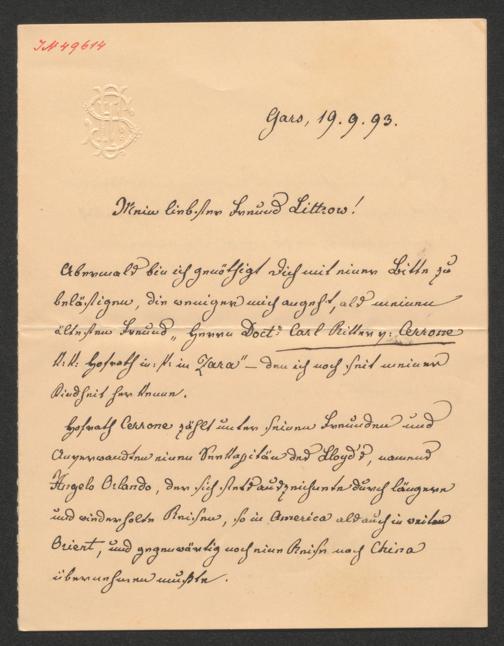 IN 49614
Gars, 19. 9. 93.
Mein liebster Freund Littrow!
Abermals bin ich genöthigt Dich mit einer Bitte zu
belästigen, die weniger mich angeht, als meinen
ältesten Freund „Herrn Doctr Carl Ritter v: Cerrone
K: K: Hofrath in Zara" – den ich noch seit meiner
Kindheit her kenne.
Hofrath Cerrone zählt unter seinen Freunden und
Anverwandten einen Seekapitän des Lloyd's, namens
Angelo Orlando, der sich stets auszeichnete durch längere
und wiederholte Reisen, so in America als auch in weiten
Orient, und gegenwärtig noch eine Reise nach China
übernehmen mußte.